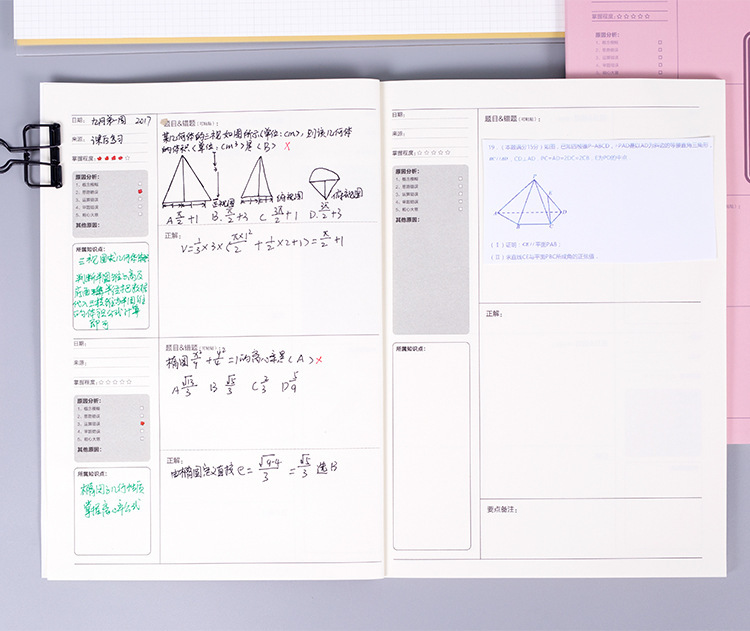 掌握程度：☆☆☆☆☆
原因分析：
1、概念模糊
2、思路错误
3、运算错误
4、审题错误
5、粗心大意
日期：九月第一周 2017
来源：课后练习
掌握程度：
原因分析：
1、概念模糊
2、思路错误
3、运算错误
4、审题错误
5、粗心大意
其他原因：
所属知识点：
题目&错题（可粘贴）：
某几何体的三视图如图所示(单位:cm),则该几何体
的体积(单位:cm³)是(B) ×
正视图 侧视图 俯视图
A π/2+1 B. π/2+3 C 3π/2+1 D. 3π/2+3
正解：
V=1/3×3×(π×1²/2+1/2×2×1)=π/2+1
日期：
来源：
掌握程度：☆☆☆☆☆
原因分析：
1、概念模糊
2、思路错误
3、运算错误
4、审题错误
5、粗心大意
其他原因：
所属知识点：
椭圆的几何性质
掌握离心率公式
题目&错题（可粘贴）：
椭圆x²/9+y²/4=1的离心率是(A) ×
A √13/3 B √5/3 C 2/3 D 5/9
正解：
由椭圆定义直接e=√9-4/3=√5/3 选B
日期：
来源：
掌握程度：☆☆☆☆☆
原因分析：
1、概念模糊
2、思路错误
3、运算错误
4、审题错误
5、粗心大意
其他原因：
所属知识点：
题目&错题（可粘贴）：
19．（本题满分15分）如图，已知四棱锥P-ABCD，△PAD是以AD为斜边的等腰直角三角形，
CD⊥AD，PC=AD=2DC=2CB，E为PD的中点．
P
E
A
D
B
C
（Ⅰ）证明：CE∥平面PAB；
（Ⅱ）求直线CE与平面PBC所成角的正弦值．
正解：
要点备注：